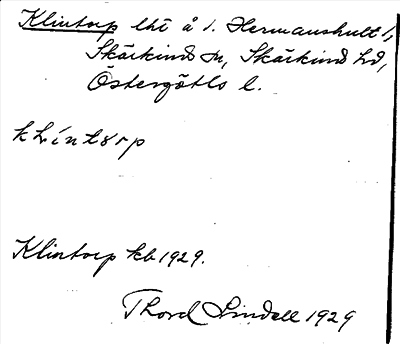 Klintorp lht å 1. Hermanshult 1,
Skärkinds sn, Skärkinds hd,
Östergötls l.
klíntorp
Klintorp kb 1929.
Thord Lindell 1929